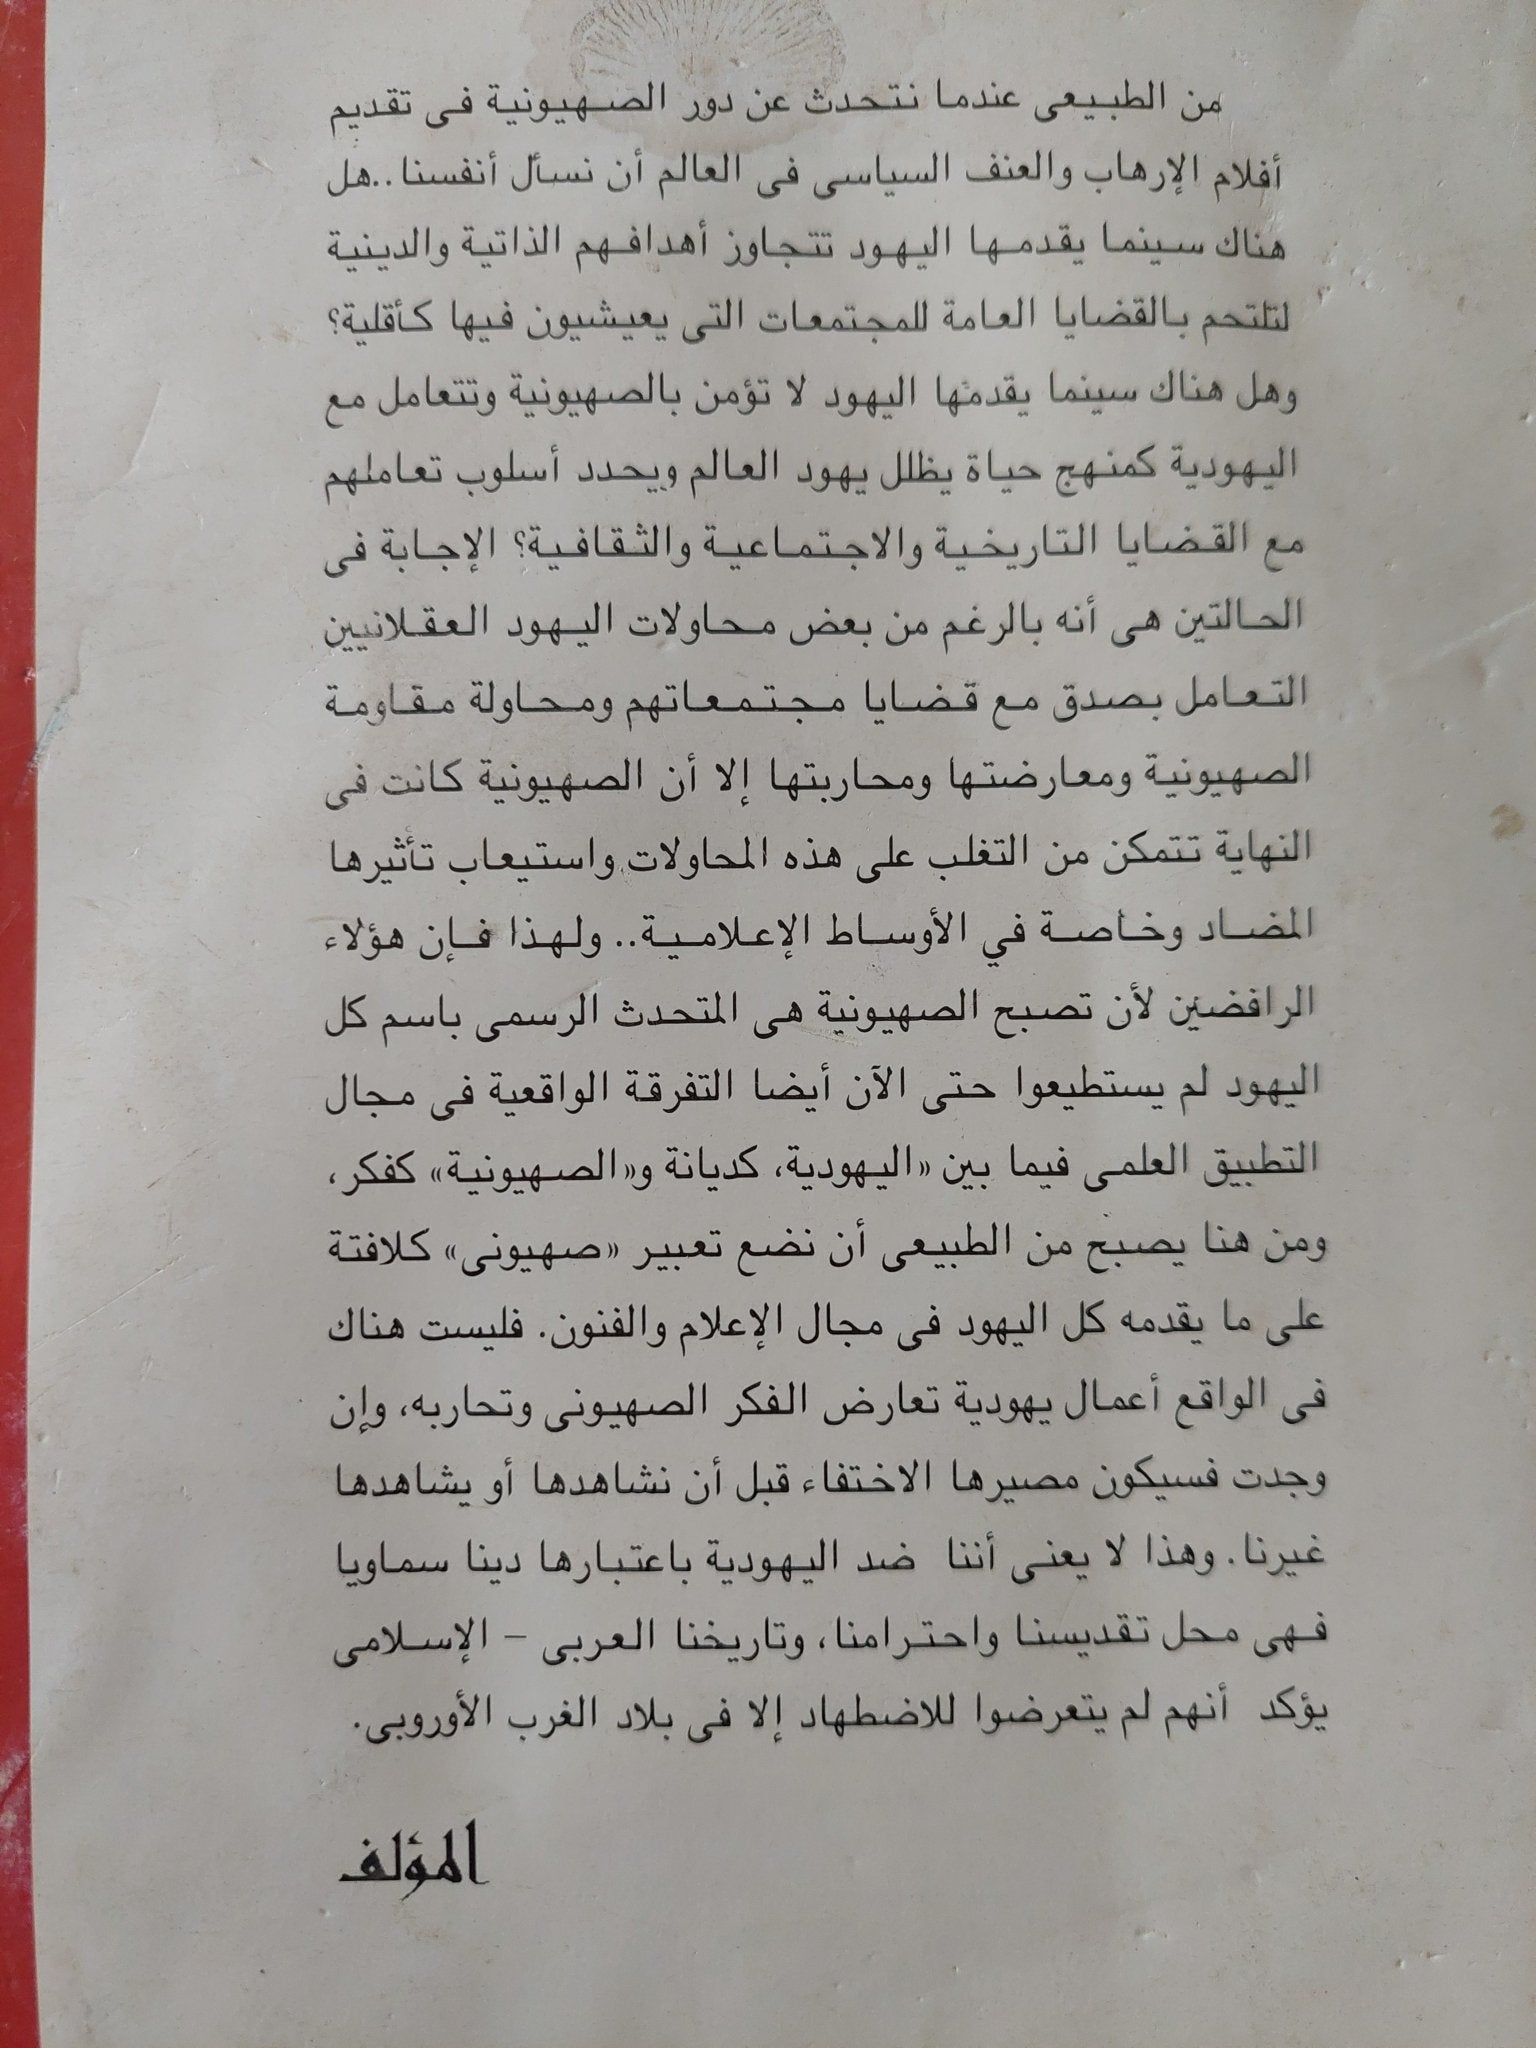 من الطبيعى عندما نتحدث عن دور الصهيونية فى تقديم
أفلام الإرهاب والعنف السياسى فى العالم أن نسأل أنفسنا..هل
هناك سينما يقدمها اليهود تتجاوز أهدافهم الذاتية والدينية
لتلتحم بالقضايا العامة للمجتمعات التى يعيشيون فيها كأقلية؟
وهل هناك سينما يقدمها اليهود لا تؤمن بالصهيونية وتتعامل مع
اليهودية كمنهج حياة يظلل يهود العالم ويحدد أسلوب تعاملهم
مع القضايا التاريخية والاجتماعية والثقافية؟ الإجابة فى
الحالتين هى أنه بالرغم من بعض محاولات اليهود العقلانيين
التعامل بصدق مع قضايا مجتمعاتهم ومحاولة مقاومة
الصهيونية ومعارضتها ومحاربتها إلا أن الصهيونية كانت فى
النهاية تتمكن من التغلب على هذه المحاولات واستيعاب تأثيرها
المضاد وخاصة في الأوساط الإعلامية.. ولهذا فإن هؤلاء
الرافضين لأن تصبح الصهيونية هى المتحدث الرسمى باسم كل
اليهود لم يستطيعوا حتى الآن أيضا التفرقة الواقعية فى مجال
التطبيق العلمى فيما بين «اليهودية، كديانة و«الصهيونية» كفكر،
ومن هنا يصبح من الطبيعى أن نضع تعبير «صهيونى» كلافتة
على ما يقدمه كل اليهود فى مجال الإعلام والفنون. فليست هناك
فى الواقع أعمال يهودية تعارض الفكر الصهيونى وتحاربه، وإن
وجدت فسيكون مصيرها الاختفاء قبل أن نشاهدها أو يشاهدها
غيرنا. وهذا لا يعنى أننا ضد اليهودية باعتبارها دينا سماويا
فهى محل تقديسنا واحترامنا، وتاريخنا العربى – الإسلامى
يؤكد أنهم لم يتعرضوا للاضطهاد إلا فى بلاد الغرب الأوروبى.
المؤلف